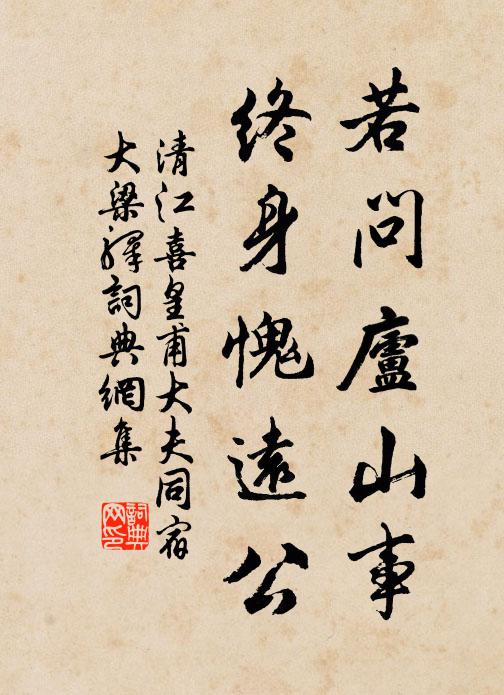 若問廬山事
終身愧遠公
清江喜皇甫大夫同宿
大梁驛詞典網集
詞典
网印